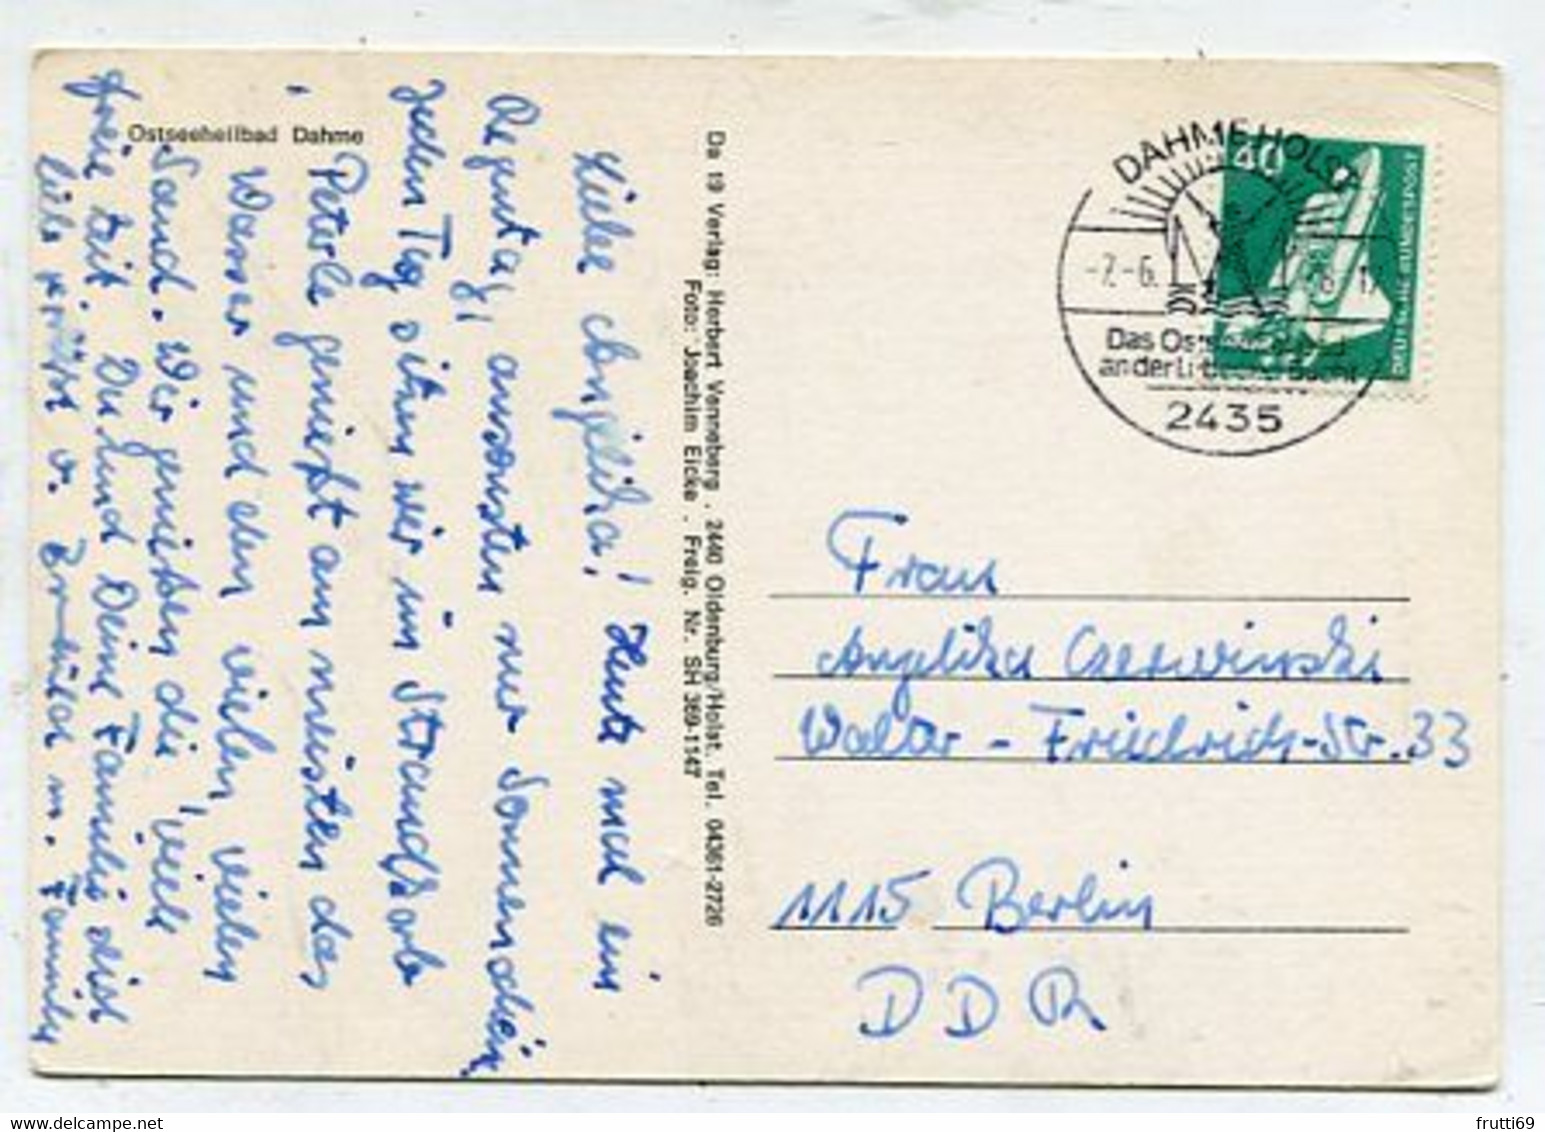 Ostseeheilbad Dahme
Liebe Angelika! Heute mal ein
Regentag, ansonsten nur Sonnenschein,
Jeden Tag sitzen wir im Strandkorb
Peterle genießt am meisten das
Wasser und den vielen, vielen
Sand. Wir genießen die viele
freie Zeit. Du und Deine Familie seist
lieb gegrüßt v. m. Familie
Da 19 Verlag: Herbert Venneberg . 2440 Oldenburg/Holst. Tel. 04361-2726
Foto: Joachim Eicke . Freig. Nr. SH 369-1147
DAHME HOLST
40
-7.-6.
Das Ostseeheilbad
an der Lübecker Bucht
2435
DEUTSCHE BUNDESPOST
Frau
Angelika Czerwinski
Walter-Friedrich-Str. 33
1115 Berlin
DDR
frutti69